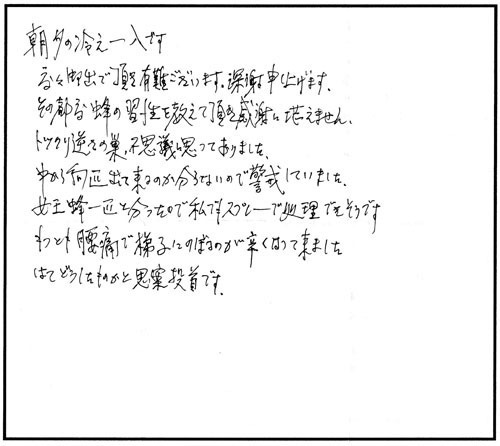 朝夕の冷え一入です
度々お出で頂き有難ございます。深謝申し上げます。
その都度蜂の習性を教えて頂き感謝に堪えません、
トックリ逆さの巣、不思議に思っておりました、
中から何匹出て来るのか分らないので警戒していました、
女王蜂一匹と分ったので私でもスプレーで処理できそうです
もっとも腰痛で梯子にのぼるのが辛くなって来ました
はてどうしたものかと思案投首です。